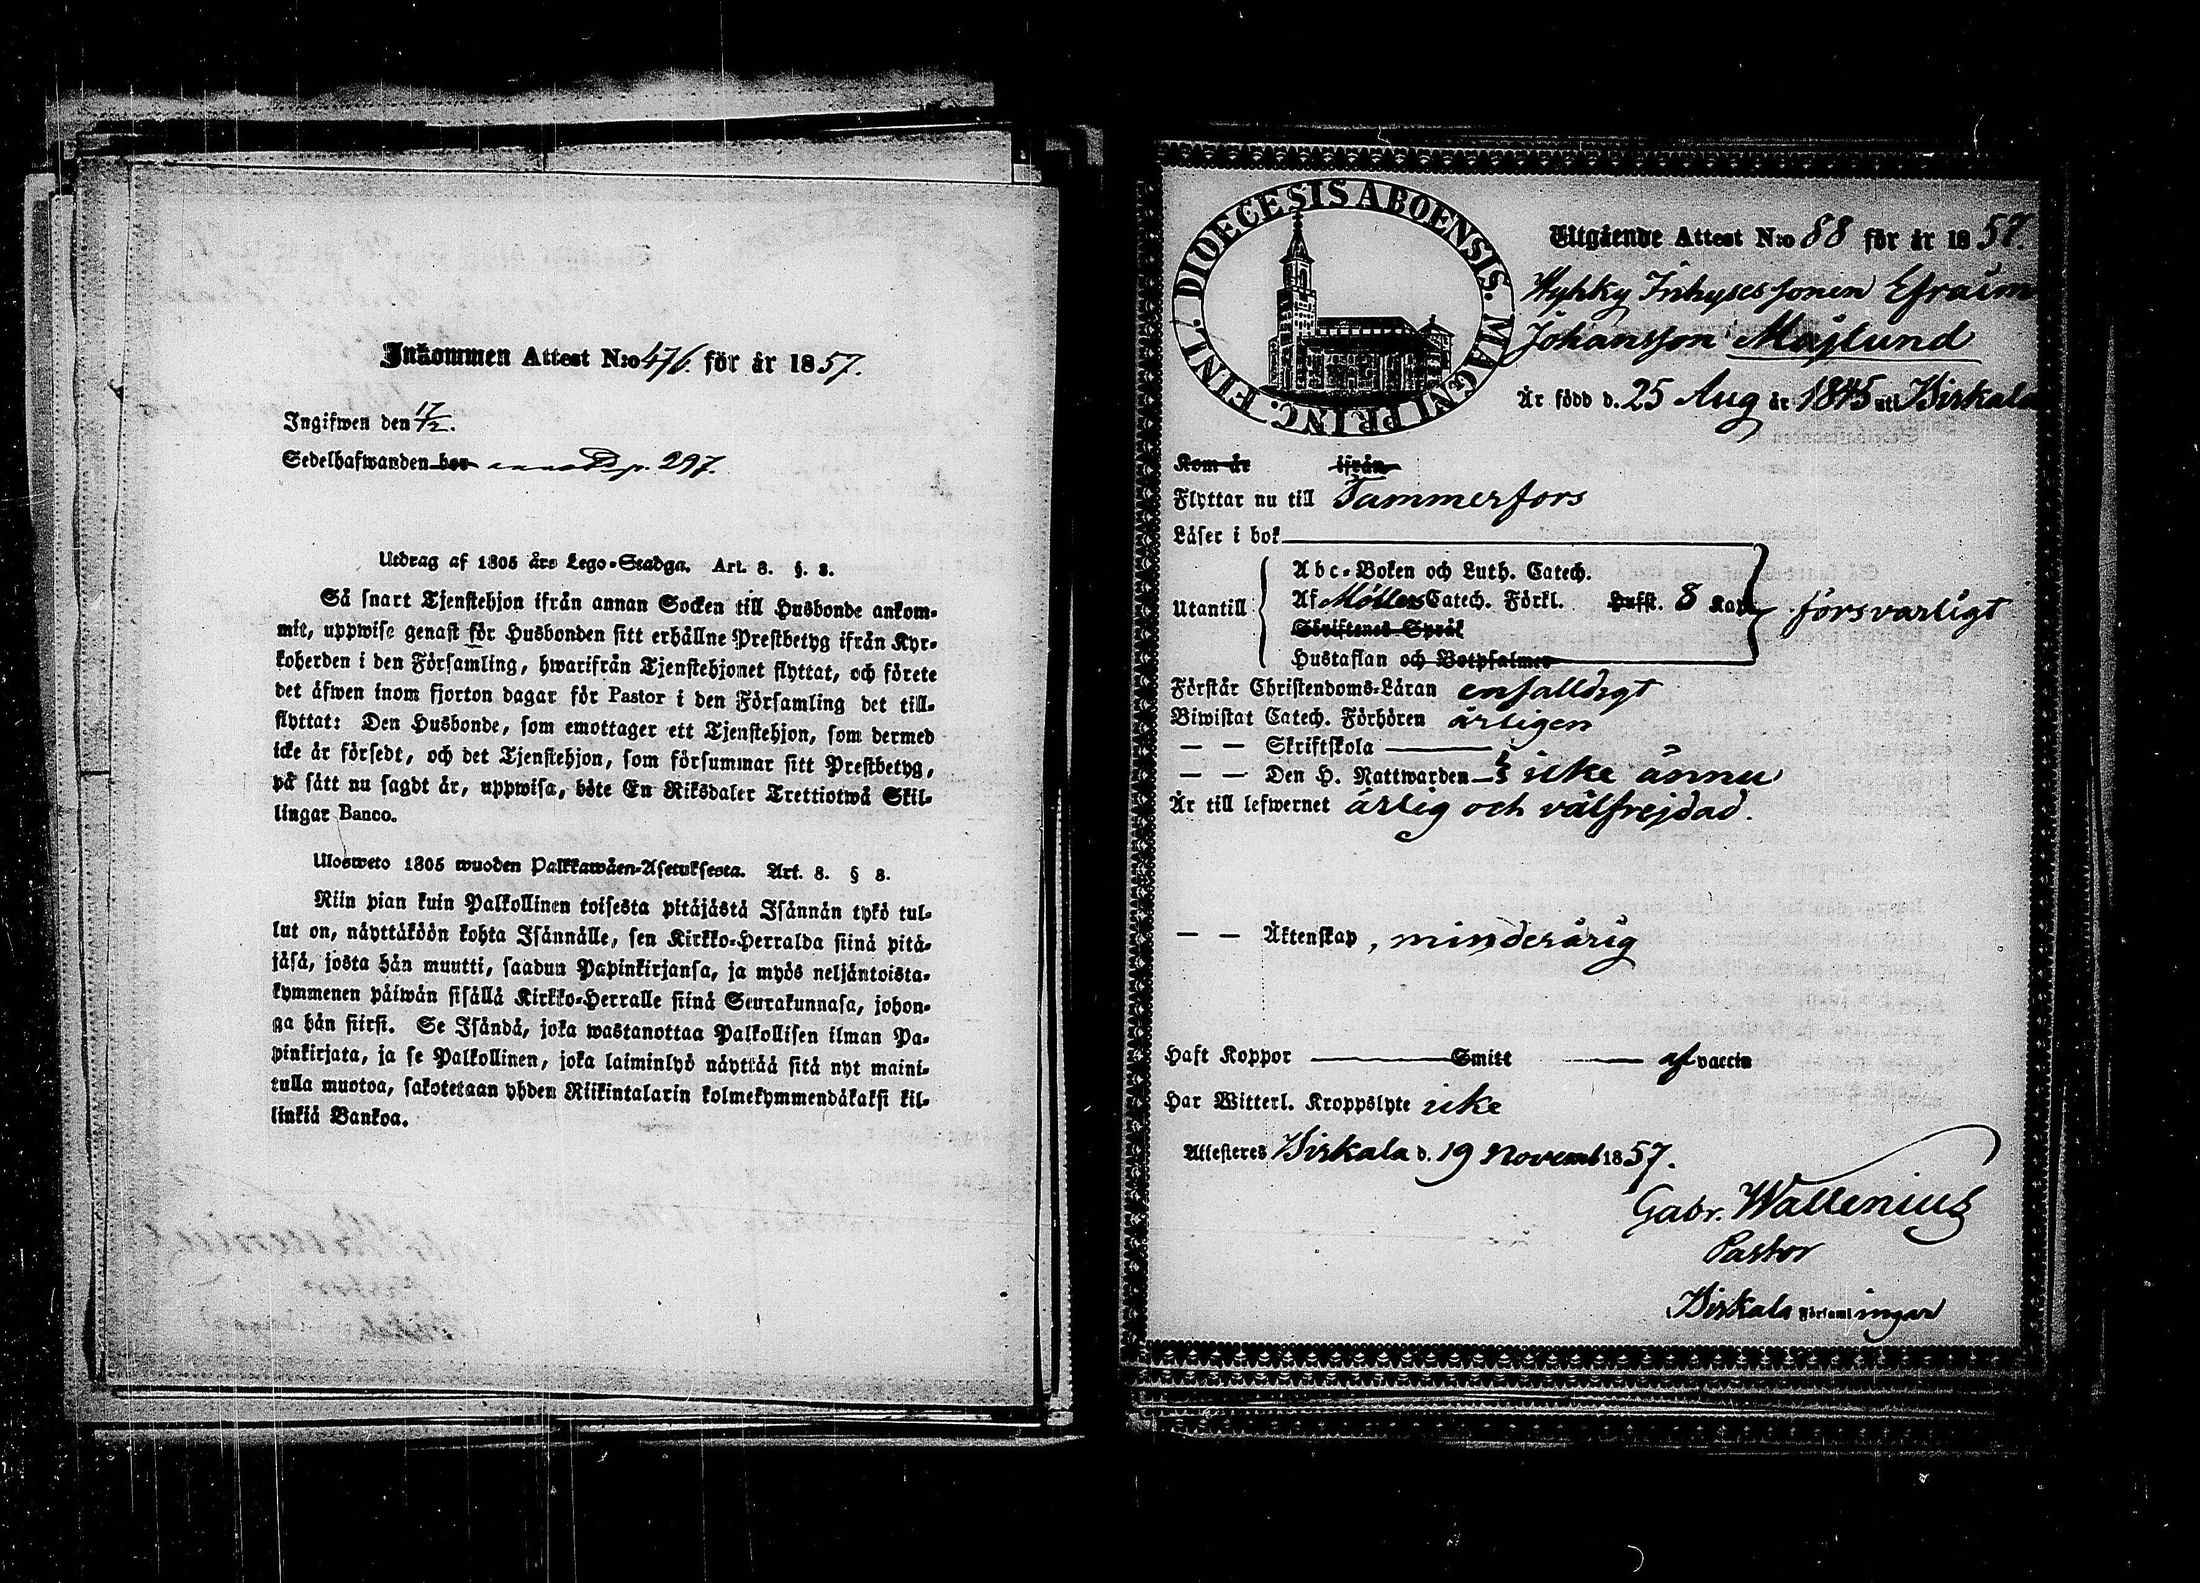 Inkommen Attest N:o 476. för år 1857.
Ingifwen den 17/2.
Sedelhafwanden bor p. 297.
Utdrag af 1805 års Lego-Stadga. Art. 8. §. 8.
Så snart Tjenstehjon ifrån annan Socken till Husbonde ankom-
mit, uppwise genast för Husbonden sitt erhållne Prestbetyg ifrån Kyr-
koherden i den Församling, hwarifrån Tjenstehjonet flyttat, och förete
det äfwen inom fjorton dagar för Pastor i den Församling det till-
flyttat: Den Husbonde, som emottager ett Tjenstehjon, som dermed
icke är försedt, och det Tjenstehjon, som försummar sitt Prestbetyg,
på sätt nu sagdt är, uppwisa, böte En Riksdaler Trettiotwå Skil-
lingar Banco.
Ulosweto 1805 wuoden Palkkawäen-Asetuksesta. Art. 8. § 8.
Niin pian kuin Palkollinen toisesta pitäjästä Isännän tykö tul-
lut on, näyttäköön kohta Isännälle, sen Kirkko-Herralda siinä pitä-
jäsä, josta hän muutti, saadun Papinkirjansa, ja myös neljäntoista-
kymmenen päiwän sisällä Kirkko-Herralle siinä Seurakunnasa, johon-
ga hän siirsi. Se Isändä, joka wastanottaa Palkollisen ilman Pa-
pinkirjata, ja se Palkollinen, joka laiminlyö näyttää sitä nyt maini-
tulla muotoa, sakotetaan yhden Riikintalarin kolmekymmendäkaksi kil-
linkiä Bankoa.
FINL. DIOECESIS ABOENSIS. MAGNI PRINC.
Utgående Attest N:o 88 för år 1857.
Hyhky Inhysessonen Efraim
Johansson Majlund
Är född d. 25 Aug år 1845 uti Birkala
Kom år ifrån
Flyttar nu till Tammerfors
Läser i bok
Utantill
Abc-Boken och Luth. Catech.
Af Möllers Catech. Förkl. Hufst. 8 Kap. försvarligt
Skriftenes Språk
Hustaflan och Botpsalmer
Förstår Christendoms-Läran enfalldigt
Biwistat Catech. Förhören årligen
— — Skriftskola
— — Den H. Nattwarden icke ännu
Är till lefwernet ärlig och välfrejdad.
— — Äktenskap, minderårig
Haft Koppor Smitt af vaccin
Har Witterl. Kroppslyte icke
Attesteres Birkala d. 19 Novemb 1857.
Gabr. Wallenius
Pastor
i Birkala Församlingar